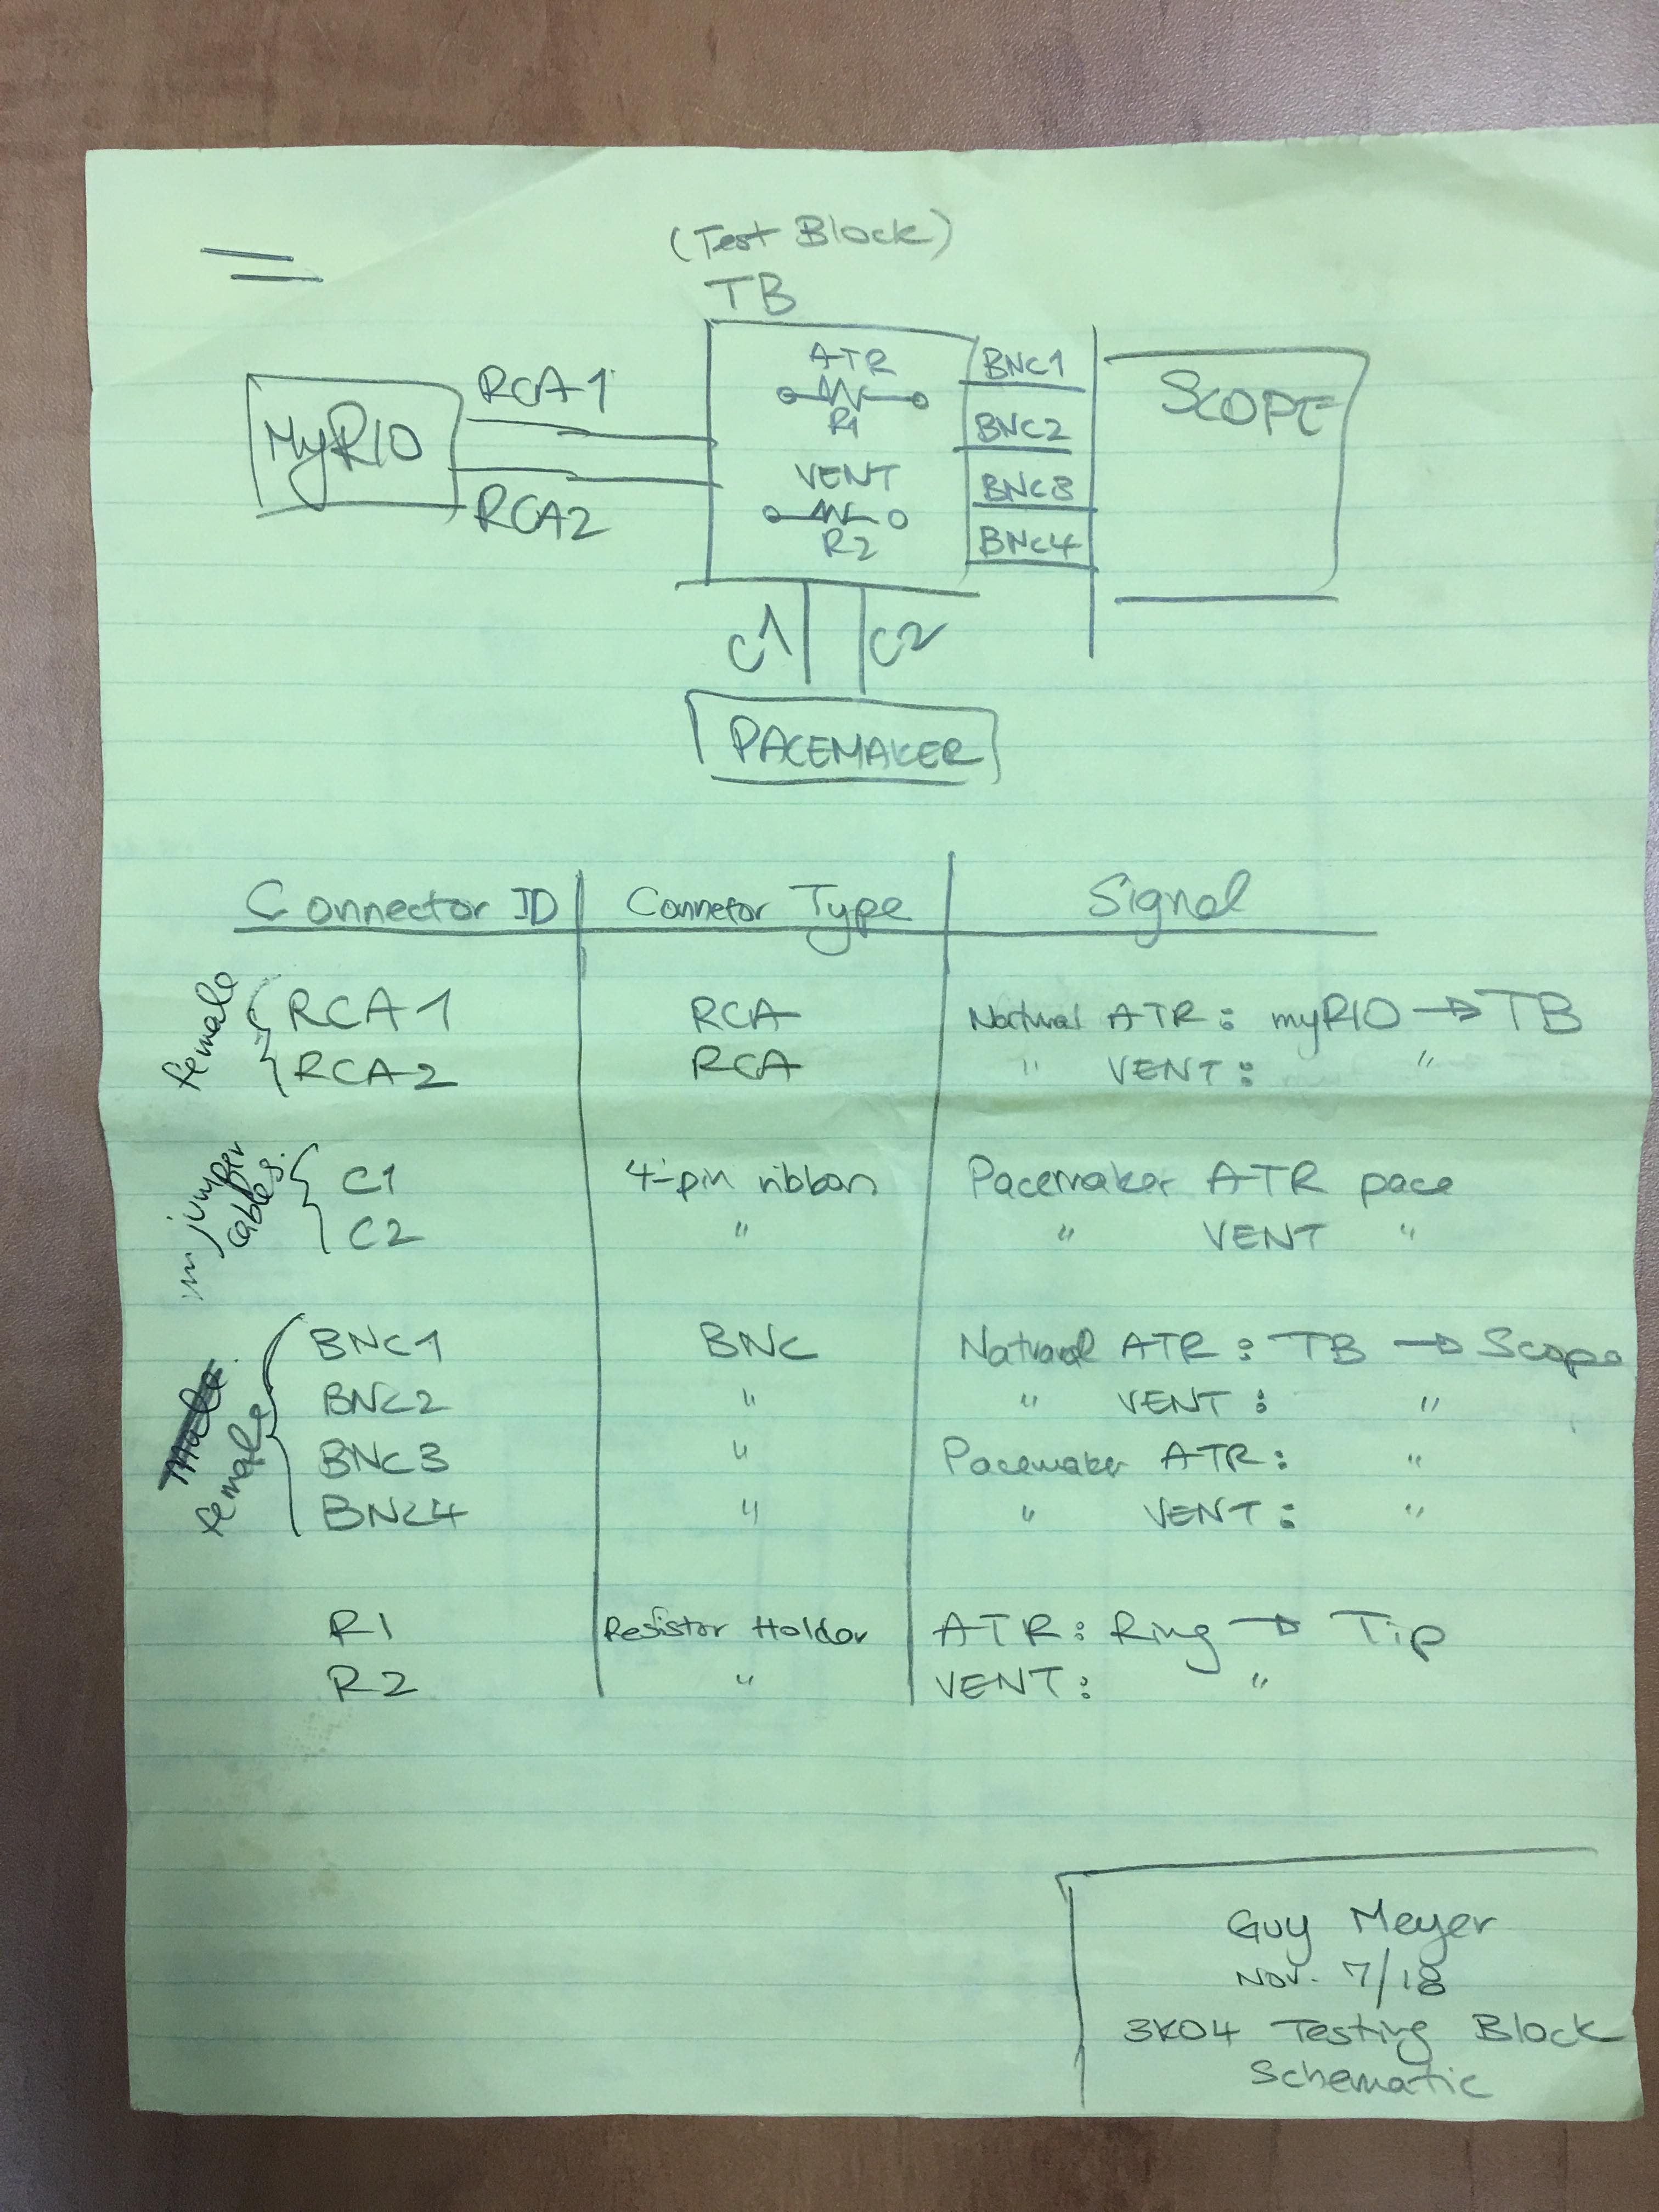 (Test Block)
TB
MyRIO
RCA1
RCA2
ATR
R1
VENT
R2
BNC1
BNC2
BNC3
BNC4
SCOPE
C1 C2
PACEMAKER
Connector ID Connetor Type Signal
female
RCA1 RCA Natural ATR: myRIO → TB
RCA2 RCA " VENT: "
jumper cables.
C1 4-pin ribbon Pacemaker ATR pace
C2 " " VENT "
female
BNC1 BNC Natural ATR: TB → Scope
BNC2 " " VENT: "
BNC3 " Pacemaker ATR: "
BNC4 " " VENT: "
R1 Resistor Holder ATR: Ring → Tip
R2 " VENT: "
Guy Meyer
Nov. 7/18
3K04 Testing Block
Schematic